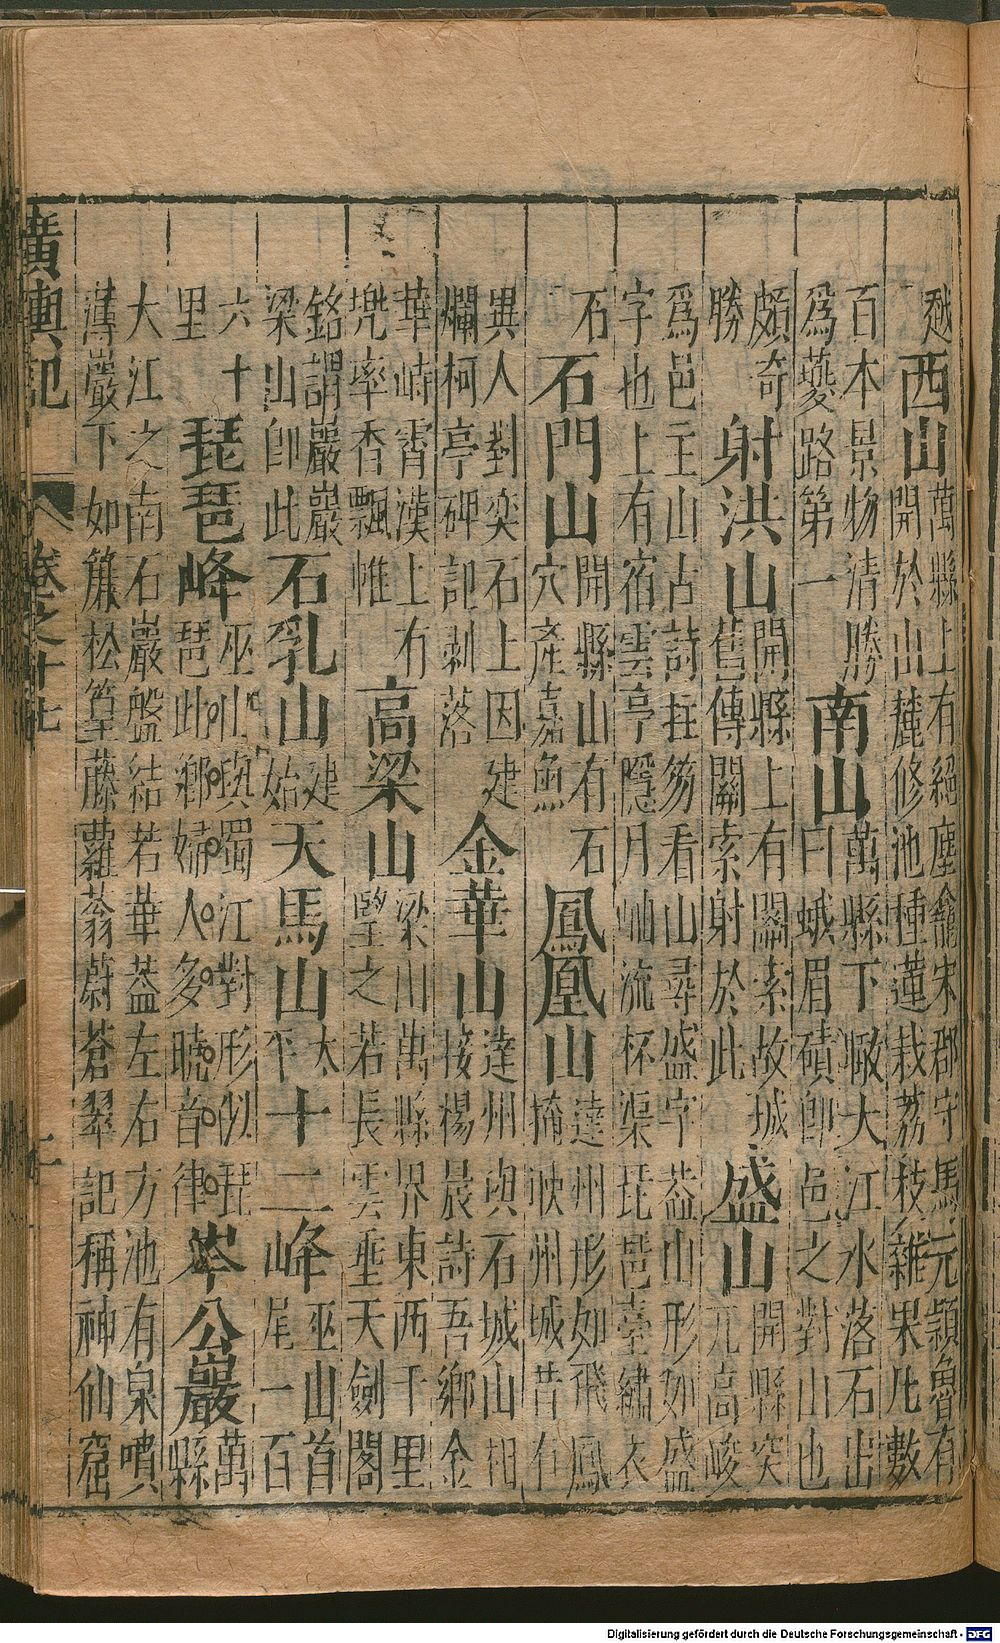 西山 萬縣上有絕塵龕宋郡守馬元穎魯有
開於山麓修池種蓮栽荔枝雜果凡數
百本景物清勝
爲夔路第一 南山 萬縣下瞰大江水落石出
曰蛾眉磧卽邑之對山也
頗奇
勝 射洪山 開縣上有關索故城
舊傳關索射於此 盛山 開縣突
兀高峻
爲邑主山占詩拄笏看山尋盛字葢山形如盛
字也上有宿雲亭隱月岫流杯渠琵琶臺繡衣
石 石門山 開縣山有石
穴產嘉魚 鳳凰山 達州形如飛鳳
掩映州城昔有
異人對奕石上因建
爛柯亭碑記剝落 金華山 達州與石城山相
接楊晨詩吾鄉金
華峙霄漢上有
兜率香飄惟 高梁山 梁山萬縣界東西千里
望之若長雲垂天劍閣
銘謂巖巖
梁山卽此 石乳山 建
始 天馬山 太
平 十二峰 巫山首
尾一百
六十
里 琵琶峰 巫山與蜀江對形似琵
琶此鄉婦人多曉音律 岑公巖 萬
縣
大江之南石巖盤結若華葢左右方池有泉噴
薄巖下如簾松篁藤蘿蓊蔚蒼翠記稱神仙窟
廣輿記 卷之十七
Digitalisierung gefördert durch die Deutsche Forschungsgemeinschaft - DFG